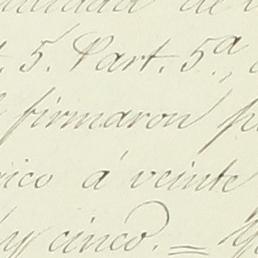 de
5. Part. 5.ª,
firmaron
rico á veinte
y cinco. =